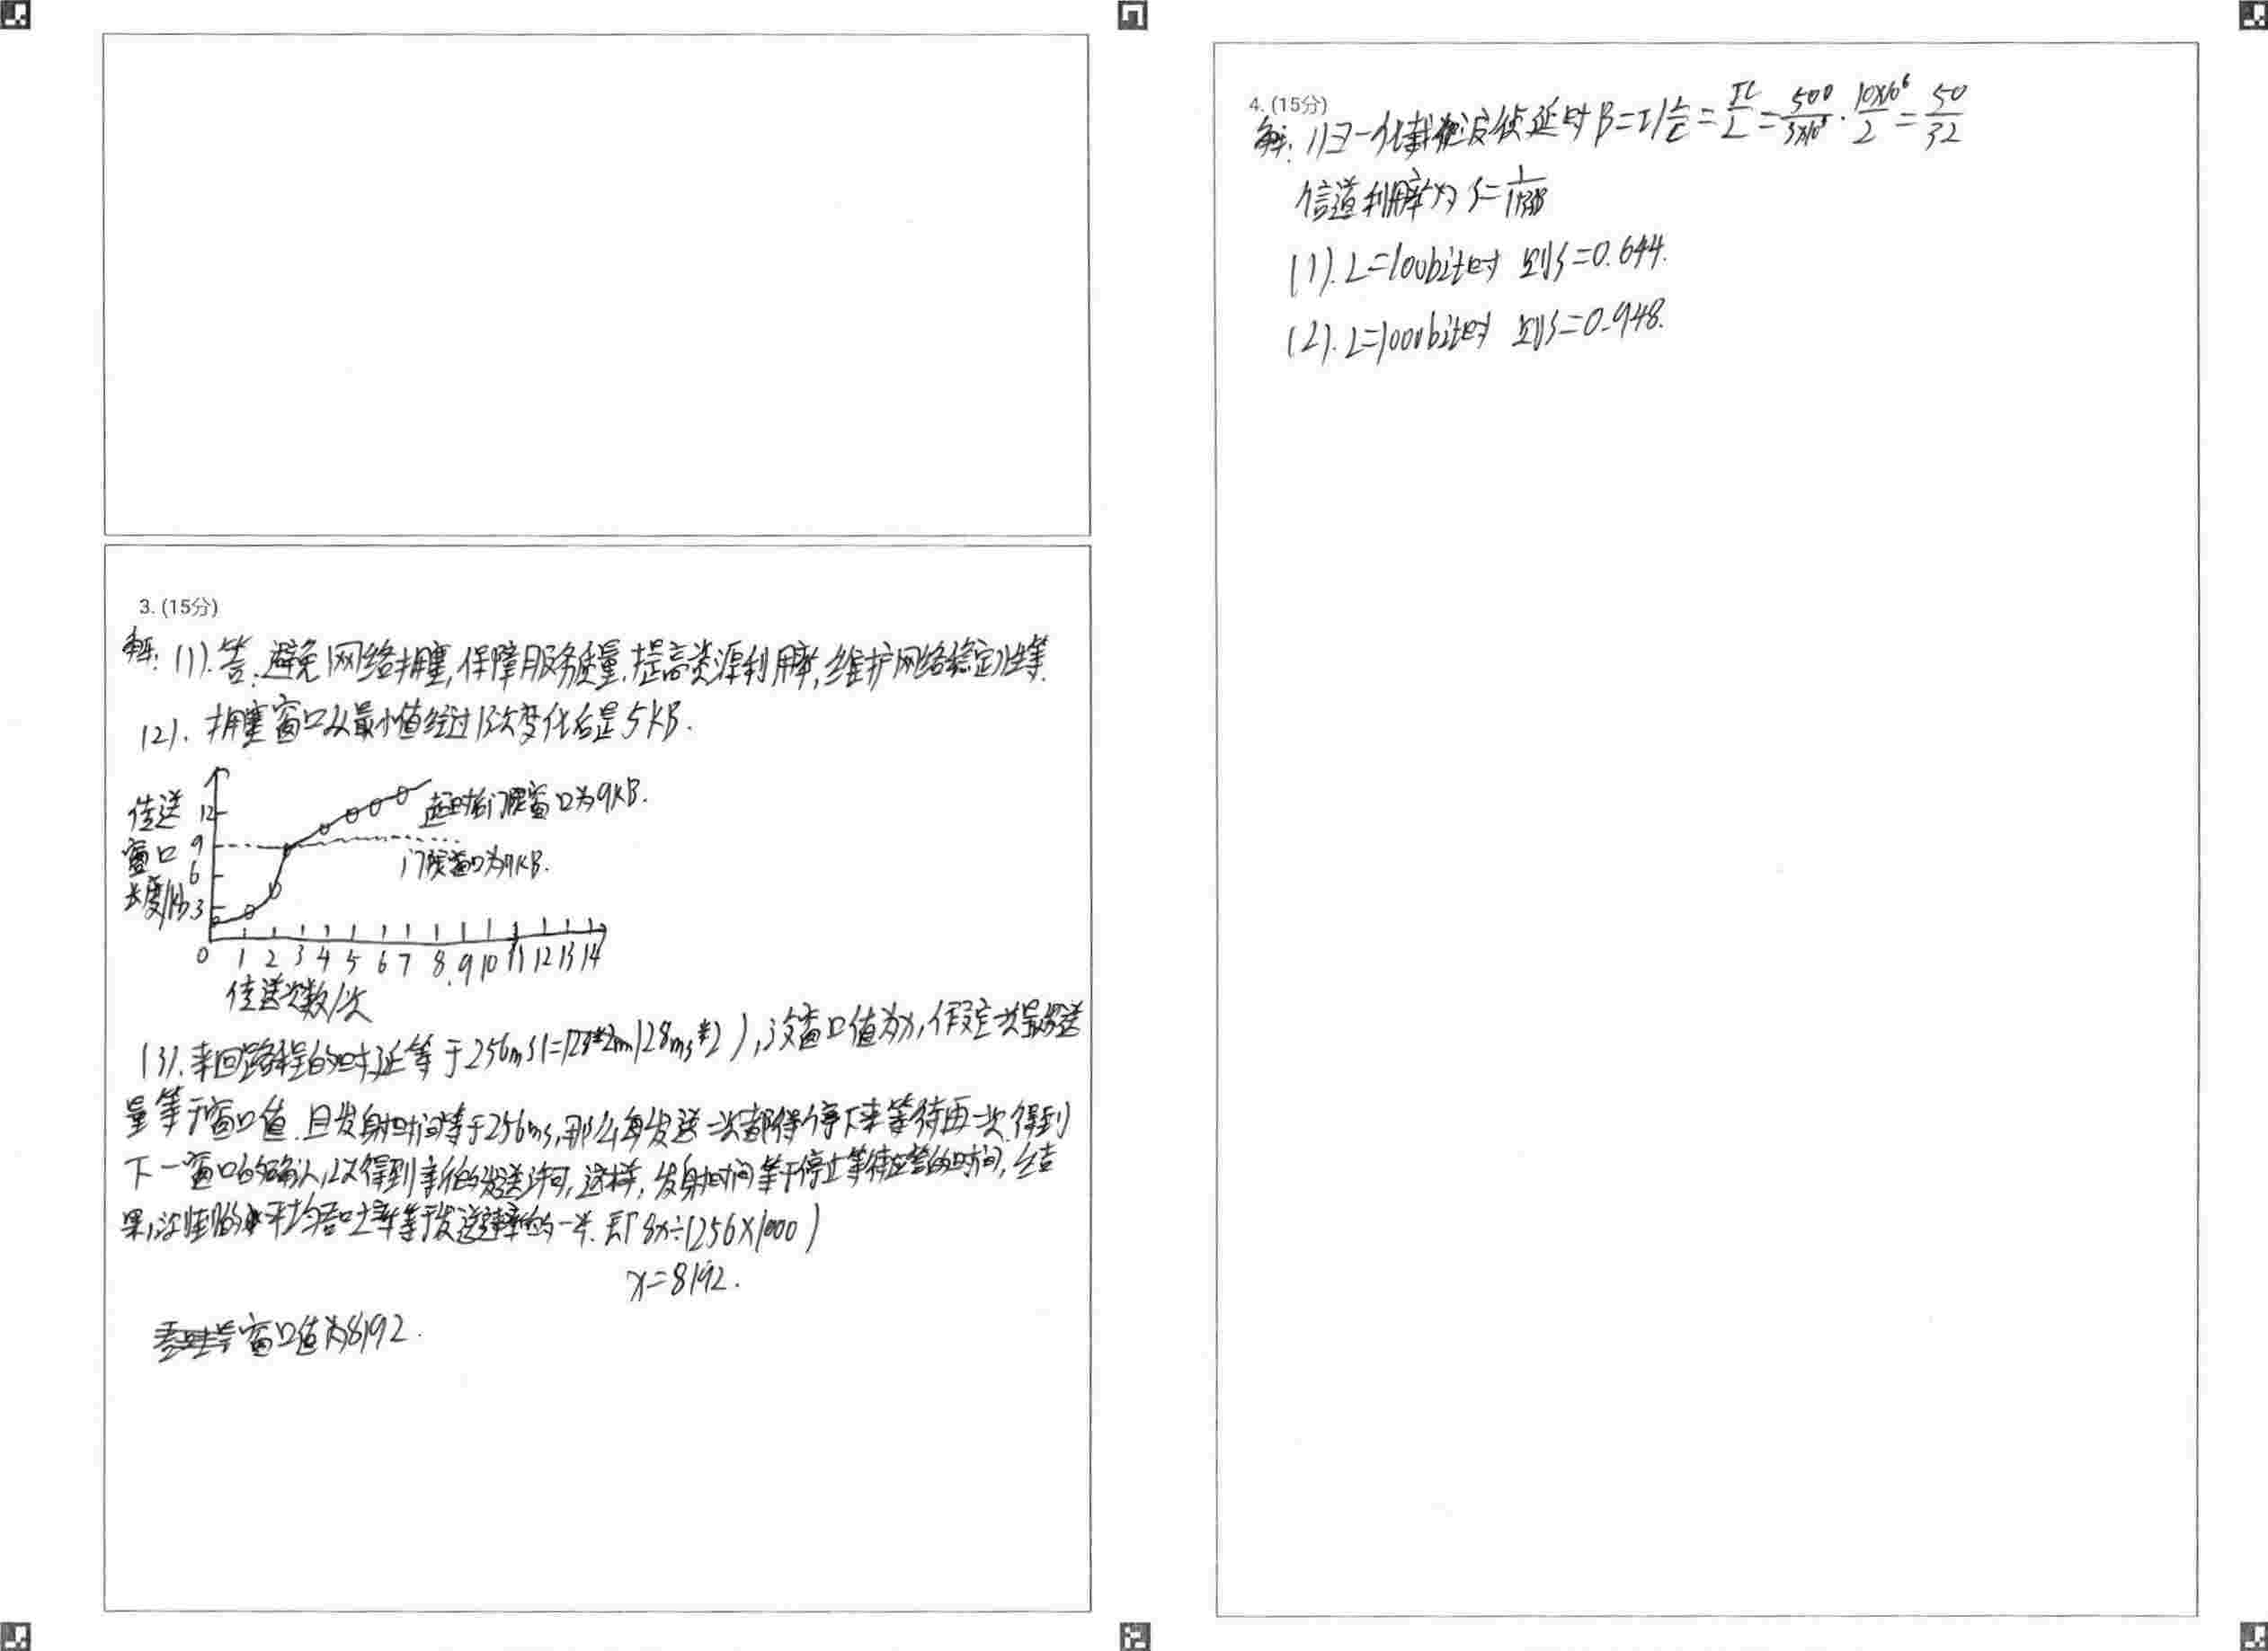 3. (15分)
解: (1). 答: 避免网络拥塞, 保障服务质量, 提高资源利用率, 维护网络稳定性等.
(2). 拥塞窗口从最小值经过13次变化后是5KB.
传送
窗口
长度/KB
12
9
6
3
超时后门限窗口为9KB.
门限窗口为9KB.
0 1 2 3 4 5 6 7 8 9 10 11 12 13 14
传送次数/次
(3). 来回路程的时延等于256ms(=128ms*2), 设窗口值为x, 假定一次最大发送
量等于窗口值. 且发射时间等于256ms, 那么每发送一次都得停下来等待再一次得到
下一窗口的确认, 以得到新的发送许可, 这样, 发射时间等于停止等待应答的时间, 结
果, 平均吞吐率等于发送速率的一半. 即 8x÷(256×1000)
x=8192.
窗口值为8192.
4. (15分)
解: 归一化载波侦延时 β=τ/(L/C)=τC/L=500/(3×10⁸)·(10×10⁶)/2=50/32
信道利用率为 S=
(1). L=100bit时 则S=0.644.
(2). L=1000bit时 则S=0.948.